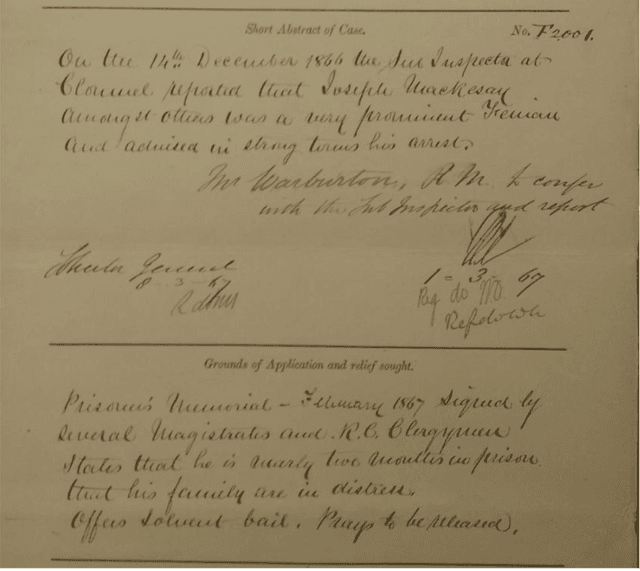 Short Abstract of Case.
No. F2001.
On the 14th December 1866 the Sub Inspector at
Clonmel reported that Joseph Mackesay
amongst others was a very prominent Fenian
and advised in strong terms his arrest.
Mr Warburton, R.M. to confer
with the Sub Inspector and report
General
8-3-67
1-3-67
Grounds of Application and relief sought.
Prisoner's Memorial - February 1867 Signed by
several Magistrates and R.C. Clergymen
States that he is nearly two months in prison
that his family are in distress.
Offers solvent bail. Prays to be released.